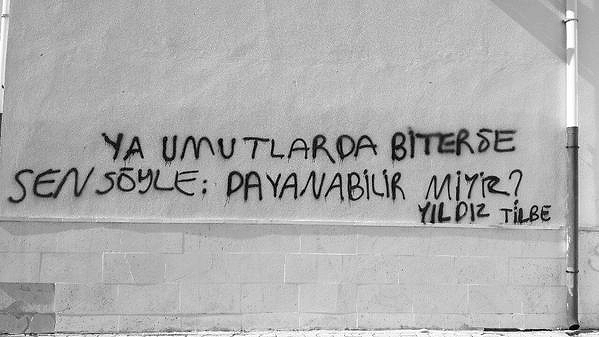 YA UMUTLARDA BİTERSE
SEN SÖYLE: DAYANABİLİR MİYİZ?
YILDIZ TİLBE